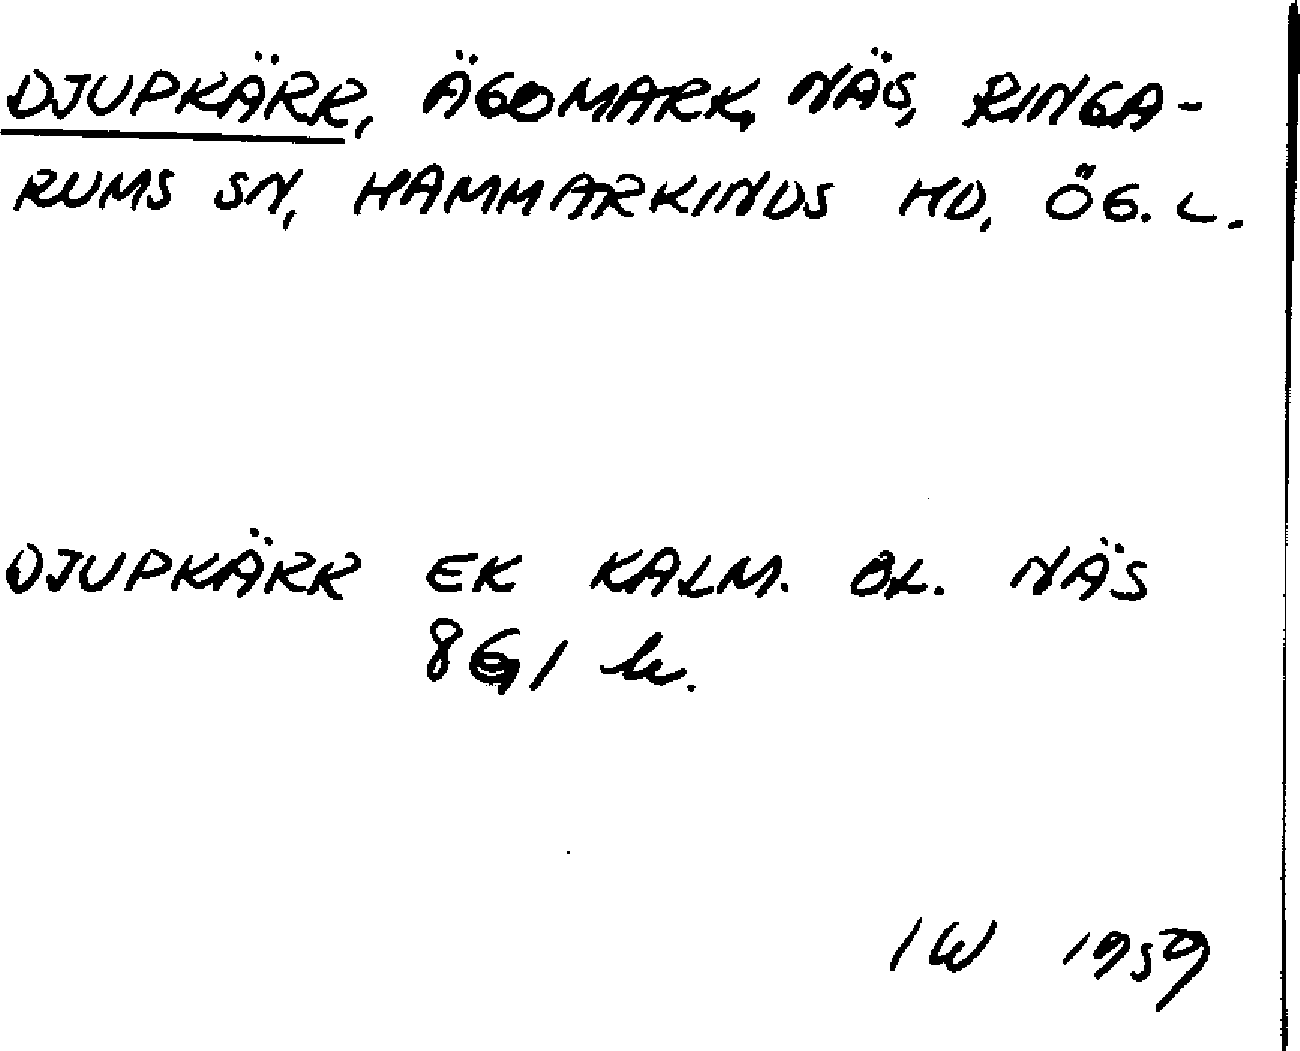 DJUPKÄRR, ÄGOMARK, NÄS, RINGA-
RUMS SN, HAMMARKINDS HD, ÖG. L.
DJUPKÄRR EK KALM. BL. NÄS
IW 1959